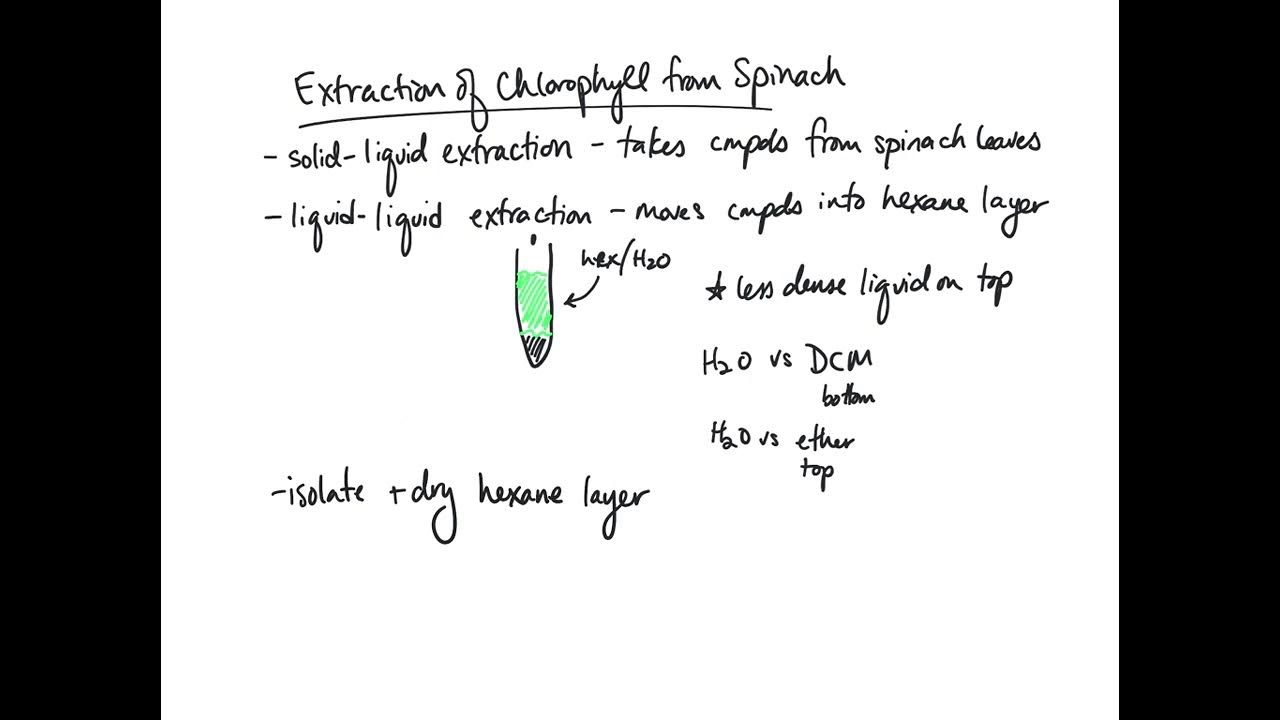 Extraction of Chlorophyll from Spinach
- solid-liquid extraction - takes cmpds from spinach leaves
- liquid-liquid extraction - moves cmpds into hexane layer
hex/H2O
★ less dense liquid on top
H2O vs DCM
bottom
H2O vs ether
top
- isolate + dry hexane layer